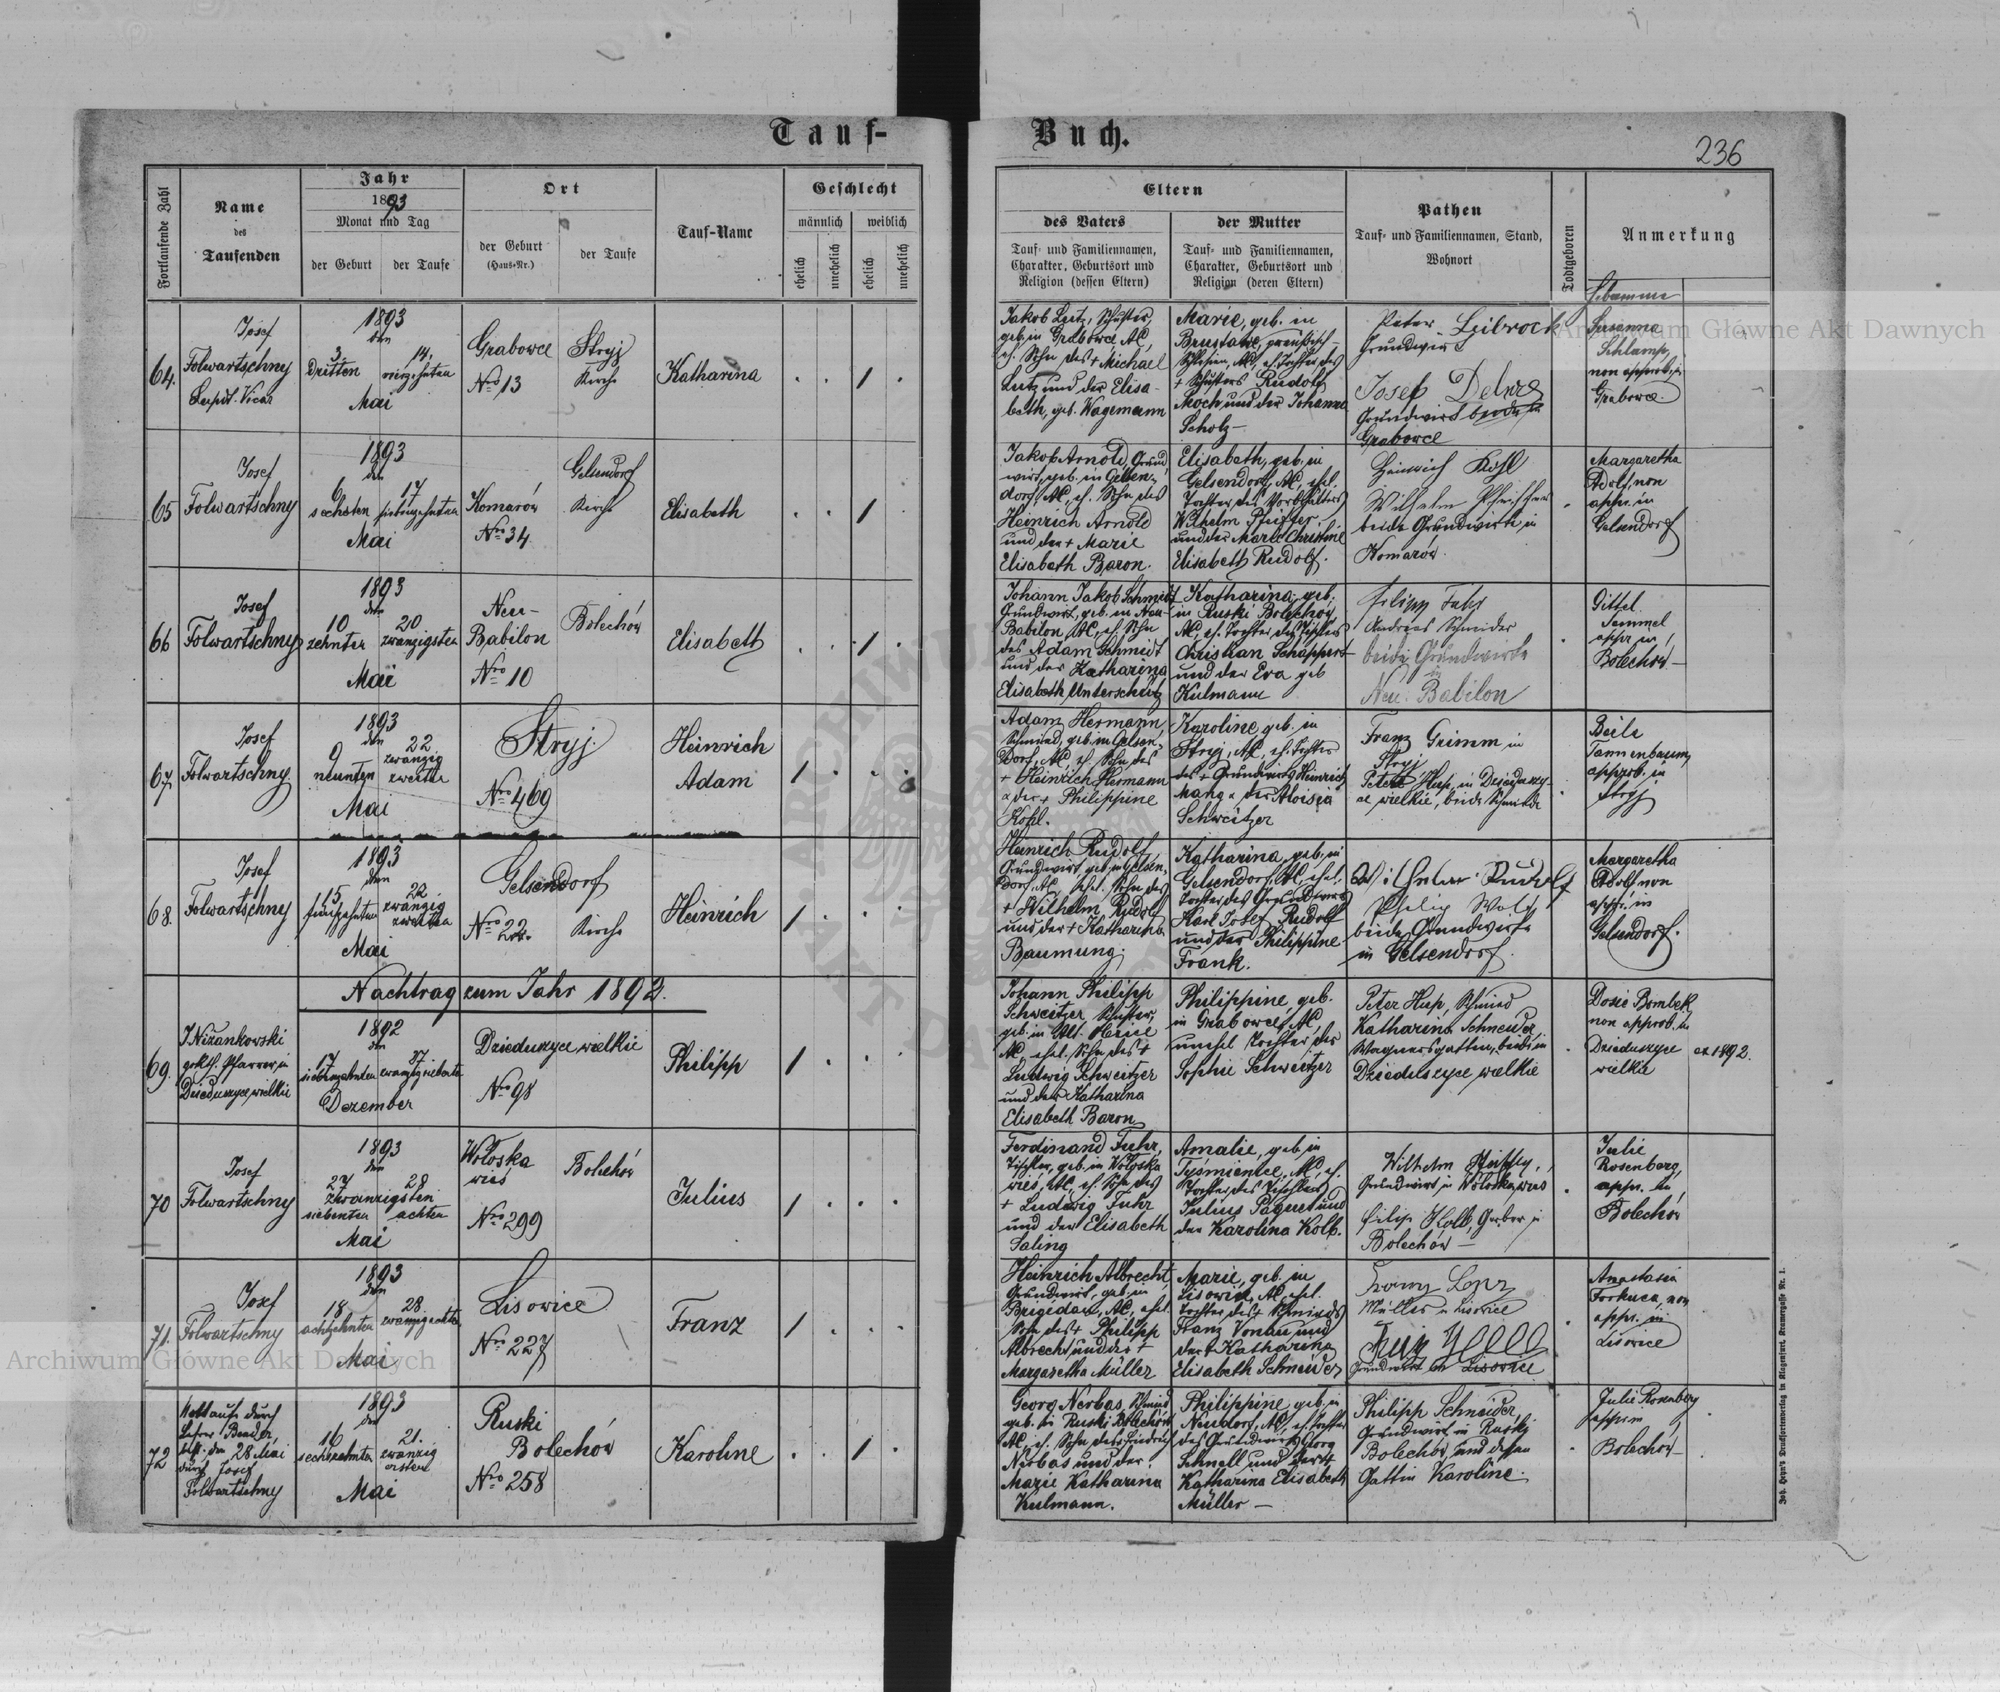 Tauf-
Buch.
236
Fortlaufende Zahl
Name
des
Taufenden
Jahr
1893
Monat und Tag
der Geburt
der Taufe
Ort
der Geburt
(Haus-Nr.)
der Taufe
Tauf-Name
Geschlecht
männlich
weiblich
ehelich
unehelich
ehelich
unehelich
Eltern
des Vaters
Tauf- und Familiennamen,
Charakter, Geburtsort und
Religion (dessen Eltern)
der Mutter
Tauf- und Familiennamen,
Charakter, Geburtsort und
Religion (deren Eltern)
Pathen
Tauf- und Familiennamen, Stand,
Wohnort
Todtgeboren
Anmerkung
Hebamme
64.
Josef
Folwartschny
Vicar
1893
den
3.
Dritten
14.
vierzehnten
Mai
Grabowce
Nro 13
Stryj
Kirche
Katharina
Jakob Lutz, Schuster,
geb. in Grabowce, AC,
eh. Sohn des + Michael
Lutz und der Elisa-
beth, geb. Wagemann
Marie, geb. in
Brustawe, preußisch-
Schlesien, AC, eh. Tochter des
+ Schusters Rudolf
Moch und der Johanna
Scholz —
Peter Leibrock
Grundwirt
Josef
Grundwirt beide in
Grabowce
Susanna
Schlamp,
non approb. in
Grabowce
65
Josef
Folwartschny
1893
den
6
sechsten
17
siebenzehnten
Mai
Komarów
Nro 34
Gelsendorf
Kirche
Elisabeth
Jakob Arnold, Grund
wirt, geb. in Gelsen-
dorf, AC, eh. Sohn des
Heinrich Arnold
und der + Marie
Elisabeth Baron.
Elisabeth, geb. in
Gelsendorf, AC, ehel.
Tochter des
Wilhelm Pfeiffer
und der Marie Christine
Elisabeth Rudolf.
Heinrich Kohl
Wilhelm Pfeiffer
beide Grundwirte in
Komarów.
Margaretha
Adolf, non
appr. in
Gelsendorf
66
Josef
Folwartschny
1893
den
10
zehnten
20
zwanzigsten
Mai
Neu-
Babilon
Nro 10
Bolechów
Elisabeth
Johann Jakob Schmidt
Grundwirt, geb. in Neu-
Babilon, AC, eh. Sohn
des Adam Schmidt
und der Katharina
Elisabeth Unterschütz
Katharina, geb.
in Ruski Bolechów
AC, eh. Tochter des Tischlers
Christian Schappert
und der Eva geb
Kulmann
Filipp Fuhr
Andreas Schneider
beide Grundwirte
in
Neu-Babilon
Gittel
Semmel
appr. in
Bolechów —
67.
Josef
Folwartschny.
1893
den
9
neunten
22
zwanzig
zweiten
Mai
Stryj.
Nro 469
Heinrich
Adam
Adam Hermann,
Schmied, geb. in Gelsen-
dorf, AC, eh. Sohn des
+ Heinrich Hermann
u der + Philippine
Kohl.
Karoline, geb. in
Stryj, AC, eh. Tochter
des + Grundwirts Heinrich
Mang u der Aloisia
Schweitzer
Franz Grimm in
Stryj
Peter Hup, in Dzieduszy-
ce wielkie, beide Schmiede
Beile
Tannenbaum,
approb. in
Stryj
68.
Josef
Folwartschny
1893
den
15
fünfzehnten
22
zwanzig
zweiten
Mai
Gelsendorf
Nro 22.
Kirche
Heinrich
Heinrich Rudolf
Grundwirt, geb. in Gelsen-
dorf, AC, ehel. Sohn des
+ Wilhelm Rudolf
und der + Katharina
Baumung.
Katharina, geb. in
Gelsendorf, AC, ehel.
Tochter des Grundwirts
Karl Josef Rudolf
und der Philippine
Frank.
Wilhelm Rudolf
Philip Wolf
beide Grundwirte
in Gelsendorf.
Margaretha
Adolf non
appr. in
Gelsendorf.
Nachtrag zum Jahr 1892.
69.
J Niżankowski
grkth. Pfarrer in
Dzieduszyce wielkie
1892
den
17
siebenzehnten
27.
zwanzigsiebenten
Dezember
Dzieduszyce wielkie
Nro 98
Philipp
Johann Philipp
Schweitzer, Schuster,
geb. in
AC, ehel. Sohn des +
Ludwig Schweitzer
und der Katharina
Elisabeth Baron
Philippine, geb.
in Grabowce, AC,
unehel. Tochter der
Sophie Schweitzer
Peter Hup, Schmied
Katharina Schneider,
Wagnersgattin, beide in
Dzieduszyce wielkie
Dosie Bombek
non approb. in
Dzieduszyce
wielkie
ex 1892.
70
Josef
Folwartschny
1893
den
27
zwanzigsten
siebenten
28
achten
Mai
Wołoska
wieś
Nro 299
Bolechów
Julius
Ferdinand Fuhr,
Tischler, geb. in Wołoska
wieś, AC, eh. Sohn des
+ Ludwig Fuhr
und der Elisabeth
Saling
Amalie, geb. in
Tysmienice, AC, eh.
Tochter des Tischlers
Julius Paquet und
der Karolina Kolb.
Wilhelm
Grundwirt in Wołoska wieś
Filip Kolb, Gerber in
Bolechów —
Julie
Rosenberg,
appr. in
Bolechów
71.
Josef
Folwartschny
1893
den
18
achtzehnten
28
zwanzigachten
Mai
Lisowice
Nro 227
Franz
Heinrich Albrecht,
Grundwirt, geb. in
Brigidau, AC, ehel.
Sohn des + Philipp
Albrecht und der +
Margaretha Müller
Marie, geb. in
Lisowice, AC, ehel.
Tochter des + Schmieds
Franz Vonau und
der + Katharina
Elisabeth Schneider
Müller in Lisowice
Grundwirt in Lisowice
Anastasia
Forkuca, non
appr. in
Lisowice
72
Nottaufe durch
Lehrer Bender,
best. den 28 Mai
durch Josef
Folwartschny
1893
den
16
sechszehnten
21.
zwanzig
ersten
Mai
Ruski
Bolechów
Nro 258
Karoline
Georg Nerbas, Schmied
geb. in Ruski Bolechów
AC, eh. Sohn des Friedrich
Nirbas und der
Marie Katharina
Kulmann.
Philippine, geb. in
Neudorf, AC, eh. Tochter
des Grundwirts Georg
Schnell und der +
Katharina Elisabeth
Müller —
Philipp Schneider,
Grundwirt in Ruski
Bolechów, und dessen
Gattin Karoline.
Julie Rosenberg
appr. in
Bolechów —
Joh. Heyn's Drucksortenverlag in Klagenfurt, Kramergasse Nr. 1.
Archiwum Główne Akt Dawnych
Archiwum Główne Akt Dawnych